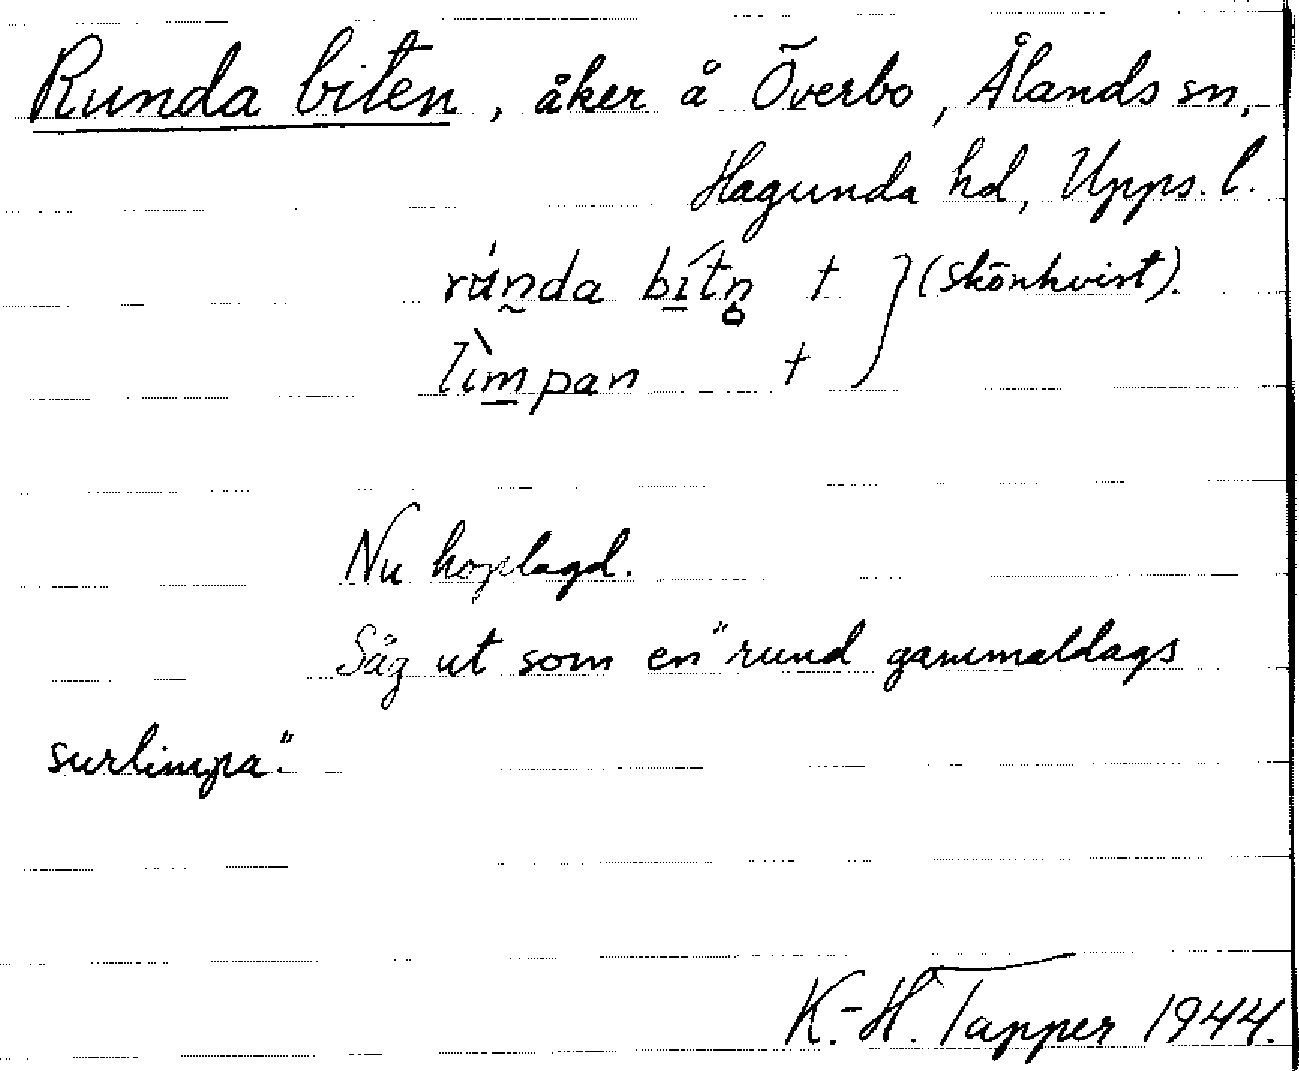 Runda biten, åker å Överbo, Ålands sn,
Hagunda hd, Upps. l.
rúnda bítn̥ † } (Skönkvist).
lìmpan †
Nu hoplagd.
Såg ut som en "rund gammaldags
surlimpa".
K.-H. Tapper 1944.